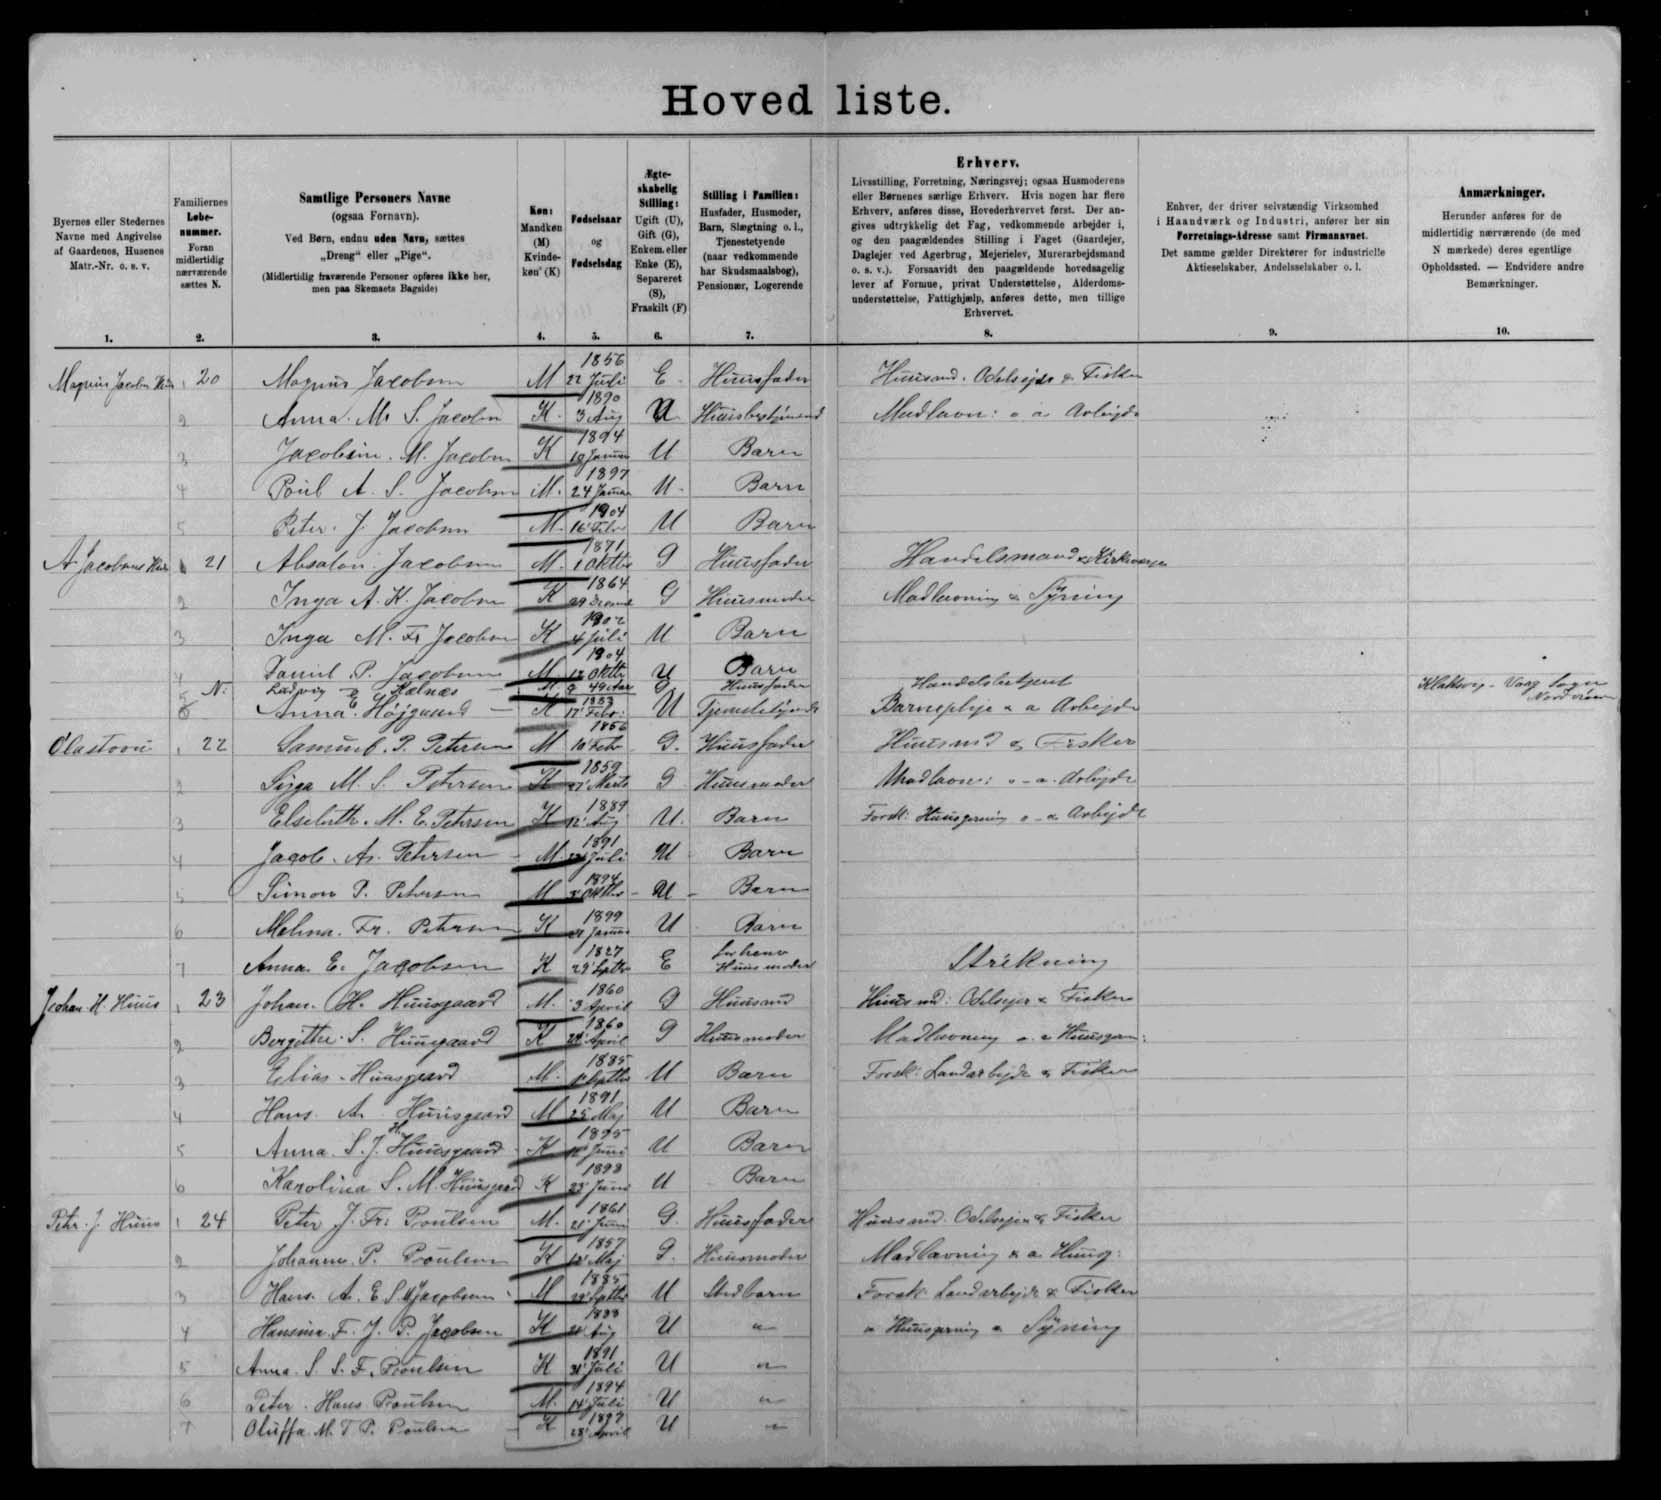 Hoved liste.
Byernes eller Stedernes
Navne med Angivelse
af Gaardenes, Husenes
Matr.-Nr. o. s. v.
1.
Familiernes
Løbe-
nummer.
Foran
midlertidig
nærværende
sættes N.
2.
Samtlige Personers Navne
(ogsaa Fornavn).
Ved Børn, endnu uden Navn, sættes
„Dreng“ eller „Pige“.
(Midlertidig fraværende Personer opføres ikke her,
men paa Skemaets Bagside)
3.
Køn:
Mandkøn
(M)
Kvinde-
køn (K)
4.
Fødselsaar
og
Fødselsdag
5.
Ægte-
skabelig
Stilling:
Ugift (U),
Gift (G),
Enkem. eller
Enke (E),
Separeret
(S),
Fraskilt (F)
6.
Stilling i Familien:
Husfader, Husmoder,
Barn, Slægtning o. l.,
Tjenestetyende
(naar vedkommende
har Skudsmaalsbog),
Pensionær, Logerende
7.
Erhverv.
Livsstilling, Forretning, Næringsvej; ogsaa Husmoderens
eller Børnenes særlige Erhverv. Hvis nogen har flere
Erhverv, anføres disse, Hovederhvervet først. Der an-
gives udtrykkelig det Fag, vedkommende arbejder i,
og den paagældendes Stilling i Faget (Gaardejer,
Daglejer ved Agerbrug, Mejerielev, Murerarbejdsmand
o. s. v.). Forsaavidt den paagældende hovedsagelig
lever af Formue, privat Understøttelse, Alderdoms-
understøttelse, Fattighjælp, anføres dette, men tillige
Erhvervet.
8.
Enhver, der driver selvstændig Virksomhed
i Haandværk og Industri, anfører her sin
Forretnings-Adresse samt Firmanavnet.
Det samme gælder Direktører for industrielle
Aktieselskaber, Andelsselskaber o. l.
9.
Anmærkninger.
Herunder anføres for de
midlertidig nærværende (de med
N mærkede) deres egentlige
Opholdssted. — Endvidere andre
Bemærkninger.
10.
Magnus Jacobs Huus 1 20 Magnus Jacobsen M 1856 22 Juli E. Huusfader Huusmd. Odelsejer & Fisker
2 Anna. M. S. Jacobsen K. 1890 3 Aug U Huusbestyrend Madlavn: o a Arbejde
3 Jacobine. M. Jacobsen K 1894 19 Januar U Barn
4 Poul A. S. Jacobsen M. 1897 24 Januar U. Barn
5 Peter. J. Jacobsen M. 1904 16 Febr U Barn
A Jacobsens Huus 1 21 Absalon Jacobsen M. 1871 1 Oktbr G Huusfader Handelsmand &
2 Inga A. K. Jacobsen K 1864 29 G Huusmoder Madlavning & Syning
3 Inga M. Fr Jacobsen K 1902 4 Juli U Barn
4 Daniel P. Jacobsen M 1904 12 Oktbr U Barn
5 N: Ludvig Kalnæs M. 49 Aar G Huusfader Handelsbetjent Klaksvig - Vaag Sogn
6 Anna E Højgaard K 1853 17 Febr: U Tjenestetyende Barnepleje & a Arbejde
Olastovu 1 22 Samuel. P. Petersen M 1856 10 Febr G. Huusfader Huusmd & Fisker
2 Sigga M. S. Petersen K 1859 27 Marts G. Huusmoder Madlavn: o - a. Arbejde
3 Elsebeth. M. E. Petersen K 1889 12 Aug U. Barn Forsk: Huusgerning o - a Arbejde
4 Jacob. A. Petersen M. 1891 Juli U Barn
5 Simon P. Petersen M 1894 Oktbr U Barn
6 Melina. Fr. Petersen K 1899 Januar U Barn
7 Anna E. Jacobsen K 1827 29 Septbr E forhenv Huusmoder Strikning
Johan. H. Huus 1 23 Johan. H. Huusgaard M. 1860 3 April G Huusmd Huusmd: Odelsejer & Fisker
2 Bergitthe. S. Huusgaard K 1860 April G Huusmoder Madlavning o. a Huusgern:
3 Elias - Huusgaard M. 1885 Septbr U Barn Forsk: Landarbejde & Fisker
4 Hans A. Huusgaard M 1891 25 Maj U Barn
5 Anna. S. J. H. Huusgaard K 1895 Juni U Barn
6 Karolina S. M. Huusgaard K 1898 23 Juni U Barn
Petr. J. Huus 1 24 Peter J. Fr: Poulsen M. 1861 21 Juni G. Huusfader Huusmd. Odelsejer & Fisker
2 Johanne P. Poulsen K 1857 12 Maj G. Huusmoder Madlavning & a Huusg:
3 Hans. A. E. S. Jacobsen M 1885 Septbr U Stedbarn Forsk: Landarbejde & Fisker
4 Hansina F. J. P. Jacobsen K 1888 Aug U " " Huusgerning & Syning
5 Anna. S. S. F. Poulsen K 1891 Juli U "
6 Peter. Hans Poulsen M. 1894 14 Juli U "
7 Oluffa M. T P. Poulsen K 1897 28 April U "